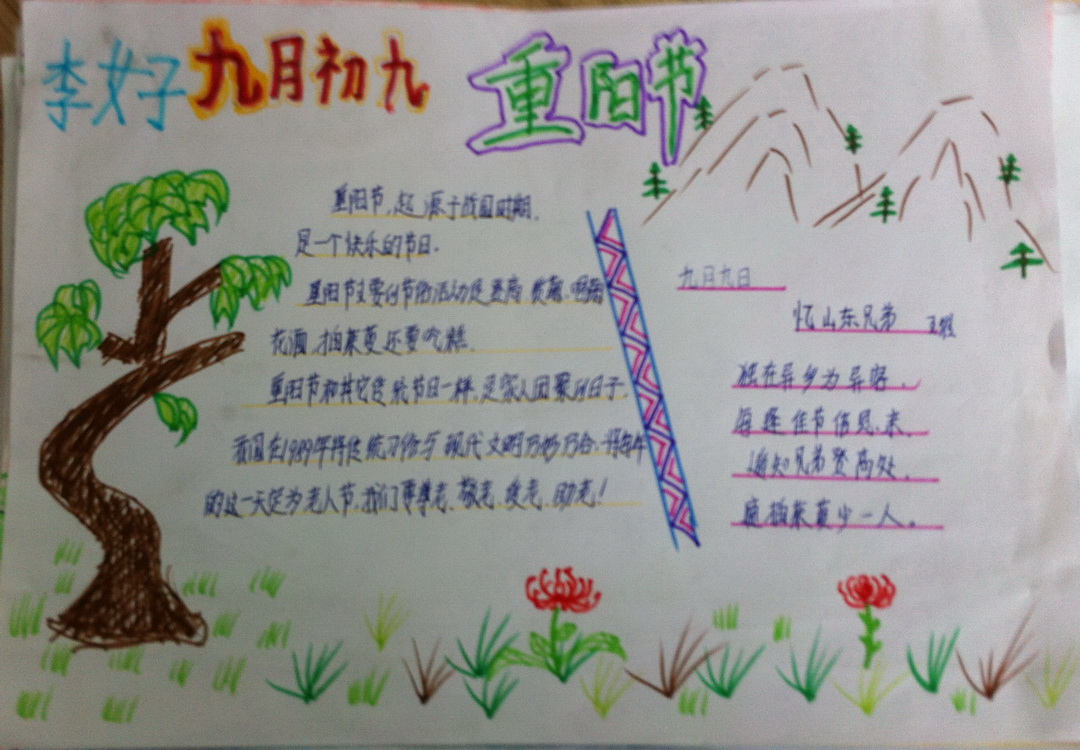 李女子 九月初九 重阳节
重阳节,起源于战国时期,
是一个快乐的节日.
重阳节主要的节的活动是登高 赏菊.喝菊
花酒,插茱萸,还要吃糕.
重阳节和其它传统节日一样,是家人团聚的日子,
我国在1989年将传统习俗与现代文明巧妙 将每年
的这一天定为老人节,我们要尊老、敬老、爱老、助老!
九月九日
忆山东兄弟 王维
独在异乡为异客,
每逢佳节倍思亲,
遥知兄弟登高处,
遍插茱萸少一人。